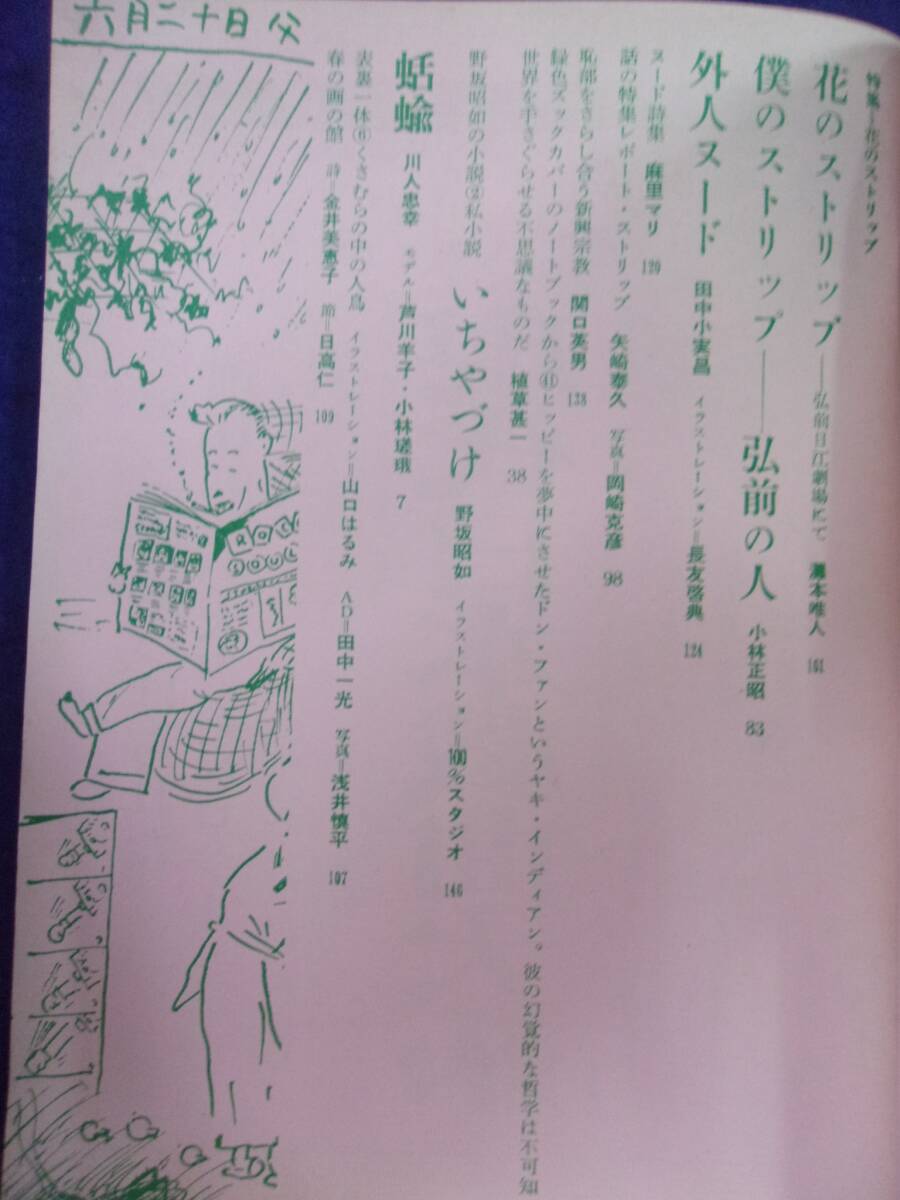 特集=花のストリップ
花のストリップ――弘前日江劇場にて 灘本唯人 161
僕のストリップ――弘前の人 小林正昭 83
外人ヌード 田中小実昌 イラストレーション=長友啓典 124
ヌード詩集 麻里マリ 129
話の特集レポート・ストリップ 矢崎泰久 写真=岡崎克彦 98
恥部をさらし合う新興宗教 関口英男 138
緑色ズックカバーのノートブックから㊶ヒッピーを夢中にさせたドン・ファンというヤキ・インディアン。彼の幻覚的な哲学は不可知
世界を手さぐらせる不思議なものだ 植草甚一 38
野坂昭如の小説②私小説 いちやづけ 野坂昭如 イラストレーション=100%スタジオ 146
蛞蝓 川人忠幸 モデル=芦川羊子・小林嵯峨 7
表裏一体⑥くさむらの中の人鳥 イラストレーション=山口はるみ AD=田中一光 写真=浅井慎平 107
春の画の館 詩=金井美恵子 節=日高仁 109
六月二十日 父